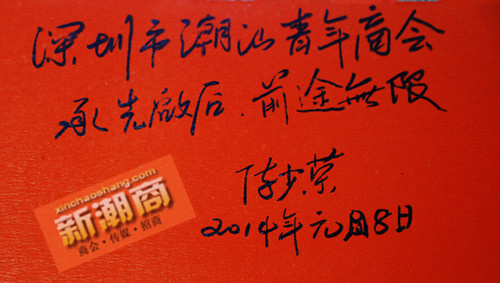 深圳市潮汕青年商会
承先啟后.前途無限
陈少荣
2014年元月8日
xinchaoshang.com
新潮商
商会·传媒·招商